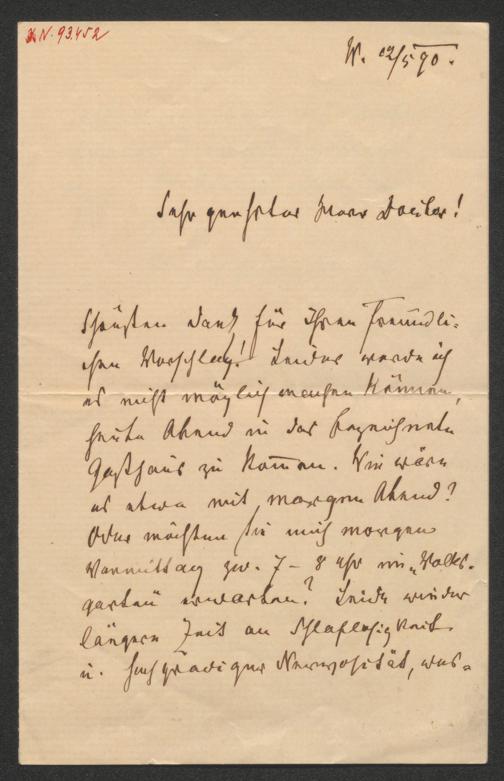 N. 93.452
W. 12/5 90.
Sehr geehrter Herr Doctor!
Schönsten Dank für Ihren freundli-
chen Vorschlag! Leider werde ich
es nicht möglich machen können,
heute Abend in das bezeichnete
Gasthaus zu kommen. Wie wäre
es etwa mit morgen Abend?
Oder möchten Sie mich morgen
Vormittag zw. 7 – 8 Uhr im „Volks-
garten erwarten? Leide wieder
längere Zeit an Schlaflosigkeit
u. hochgradiger Nervosität, was-